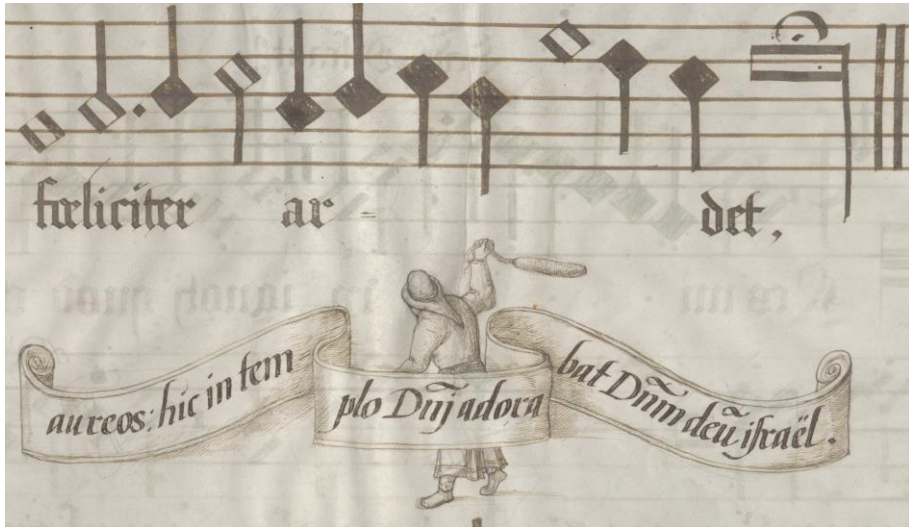 fœliciter ar - det,
aureos: hic in tem
plo Dñj adora
bat Dñm deũ israël.